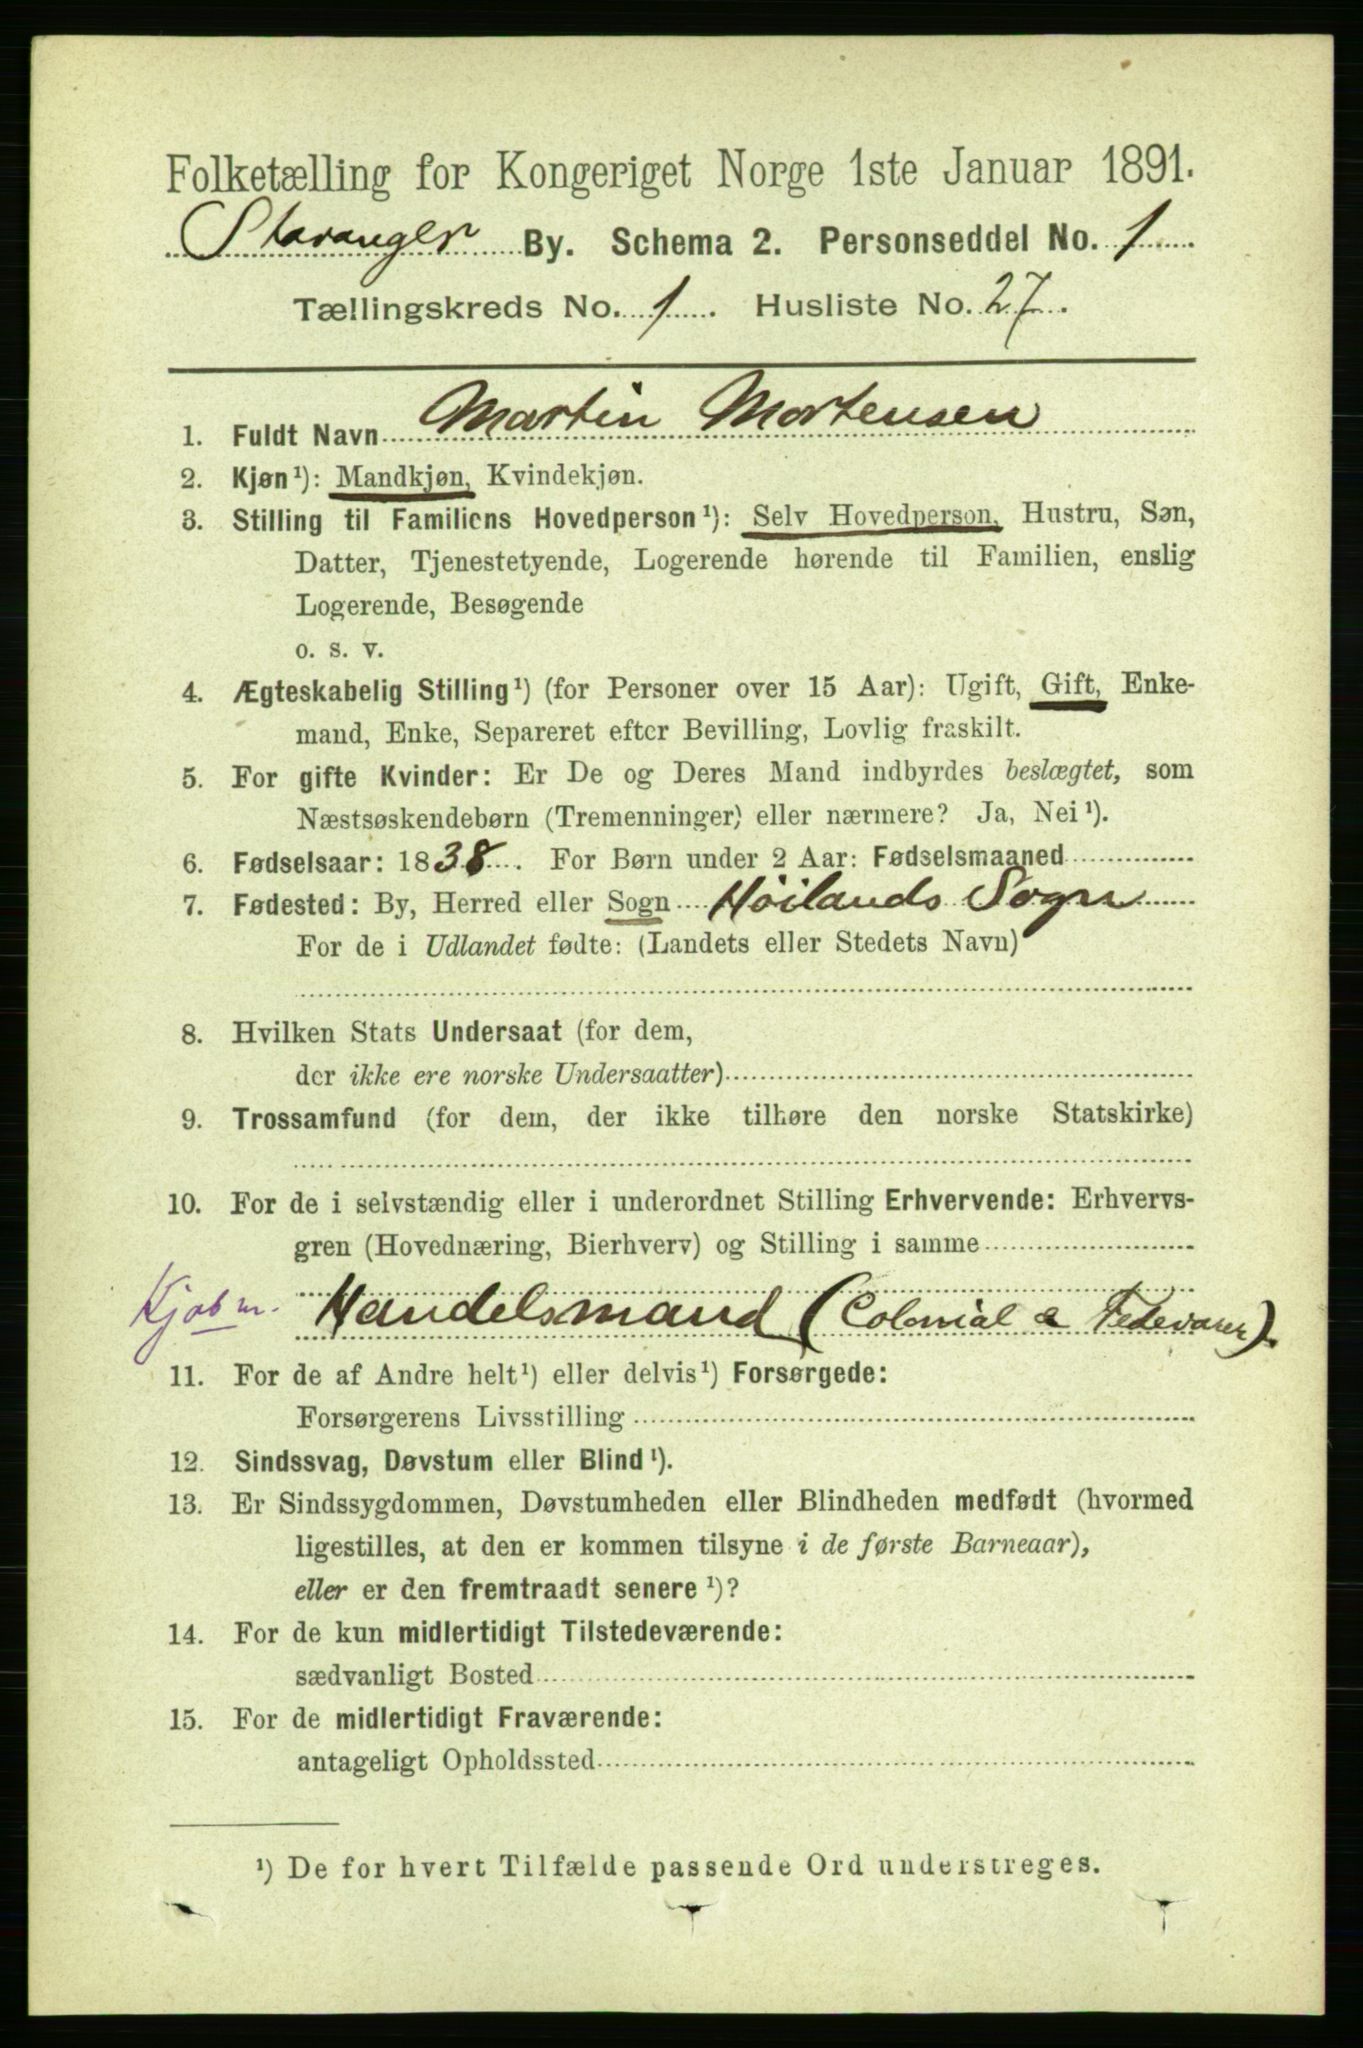 Folketælling for Kongeriget Norge 1ste Januar 1891.
Stavanger By. Schema 2. Personseddel No. 1
Tællingskreds No. 1. Husliste No. 27.
1. Fuldt Navn Martin Mortensen
2. Kjøn¹): Mandkjøn, Kvindekjøn.
3. Stilling til Familiens Hovedperson¹): Selv Hovedperson, Hustru, Søn,
Datter, Tjenestetyende, Logerende hørende til Familien, enslig
Logerende, Besøgende
o. s. v.
4. Ægteskabelig Stilling¹) (for Personer over 15 Aar): Ugift, Gift, Enke-
mand, Enke, Separeret efter Bevilling, Lovlig fraskilt.
5. For gifte Kvinder: Er De og Deres Mand indbyrdes beslægtet, som
Næstsøskendebørn (Tremenninger) eller nærmere? Ja, Nei¹).
6. Fødselsaar: 1838. For Børn under 2 Aar: Fødselsmaaned
7. Fødested: By, Herred eller Sogn Höilands Sogn
For de i Udlandet fødte: (Landets eller Stedets Navn)
8. Hvilken Stats Undersaat (for dem,
der ikke ere norske Undersaatter)
9. Trossamfund (for dem, der ikke tilhøre den norske Statskirke)
10. For de i selvstændig eller i underordnet Stilling Erhvervende: Erhvervs-
gren (Hovednæring, Bierhverv) og Stilling i samme
Kjøbm. Handelsmand (Colonial & Fedevarer)
11. For de af Andre helt¹) eller delvis¹) Forsørgede:
Forsørgerens Livsstilling
12. Sindssvag, Døvstum eller Blind¹).
13. Er Sindssygdommen, Døvstumheden eller Blindheden medfødt (hvormed
ligestilles, at den er kommen tilsyne i de første Barneaar),
eller er den fremtraadt senere¹)?
14. For de kun midlertidigt Tilstedeværende:
sædvanligt Bosted
15. For de midlertidigt Fraværende:
antageligt Opholdssted
¹) De for hvert Tilfælde passende Ord understreges.